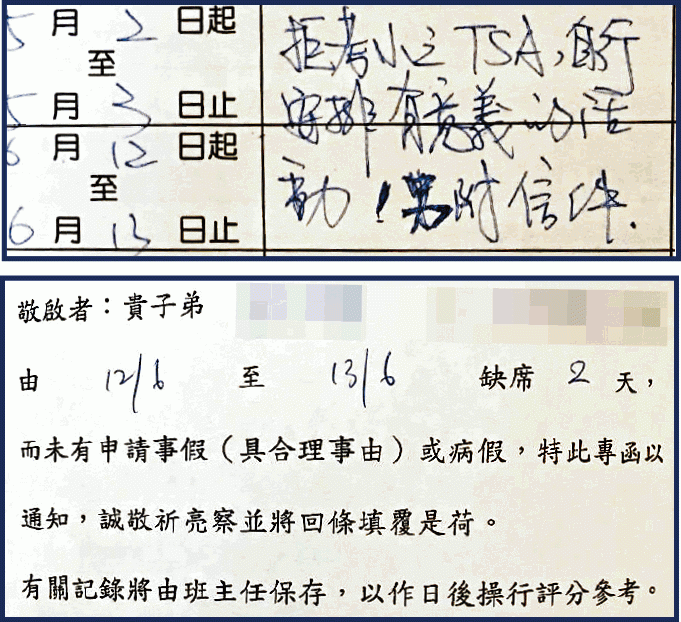 5月2日起
至
5月3日止
6月12日起
至
6月13日止
拒考小三TSA,自行
安排有意義的活
動!另附信件.
敬啟者:貴子弟
由 12/6 至 13/6 缺席 2 天,
而未有申請事假(具合理事由)或病假,特此專函以
通知,誠敬祈亮察並將回條填覆是荷。
有關記錄將由班主任保存,以作日後操行評分參考。